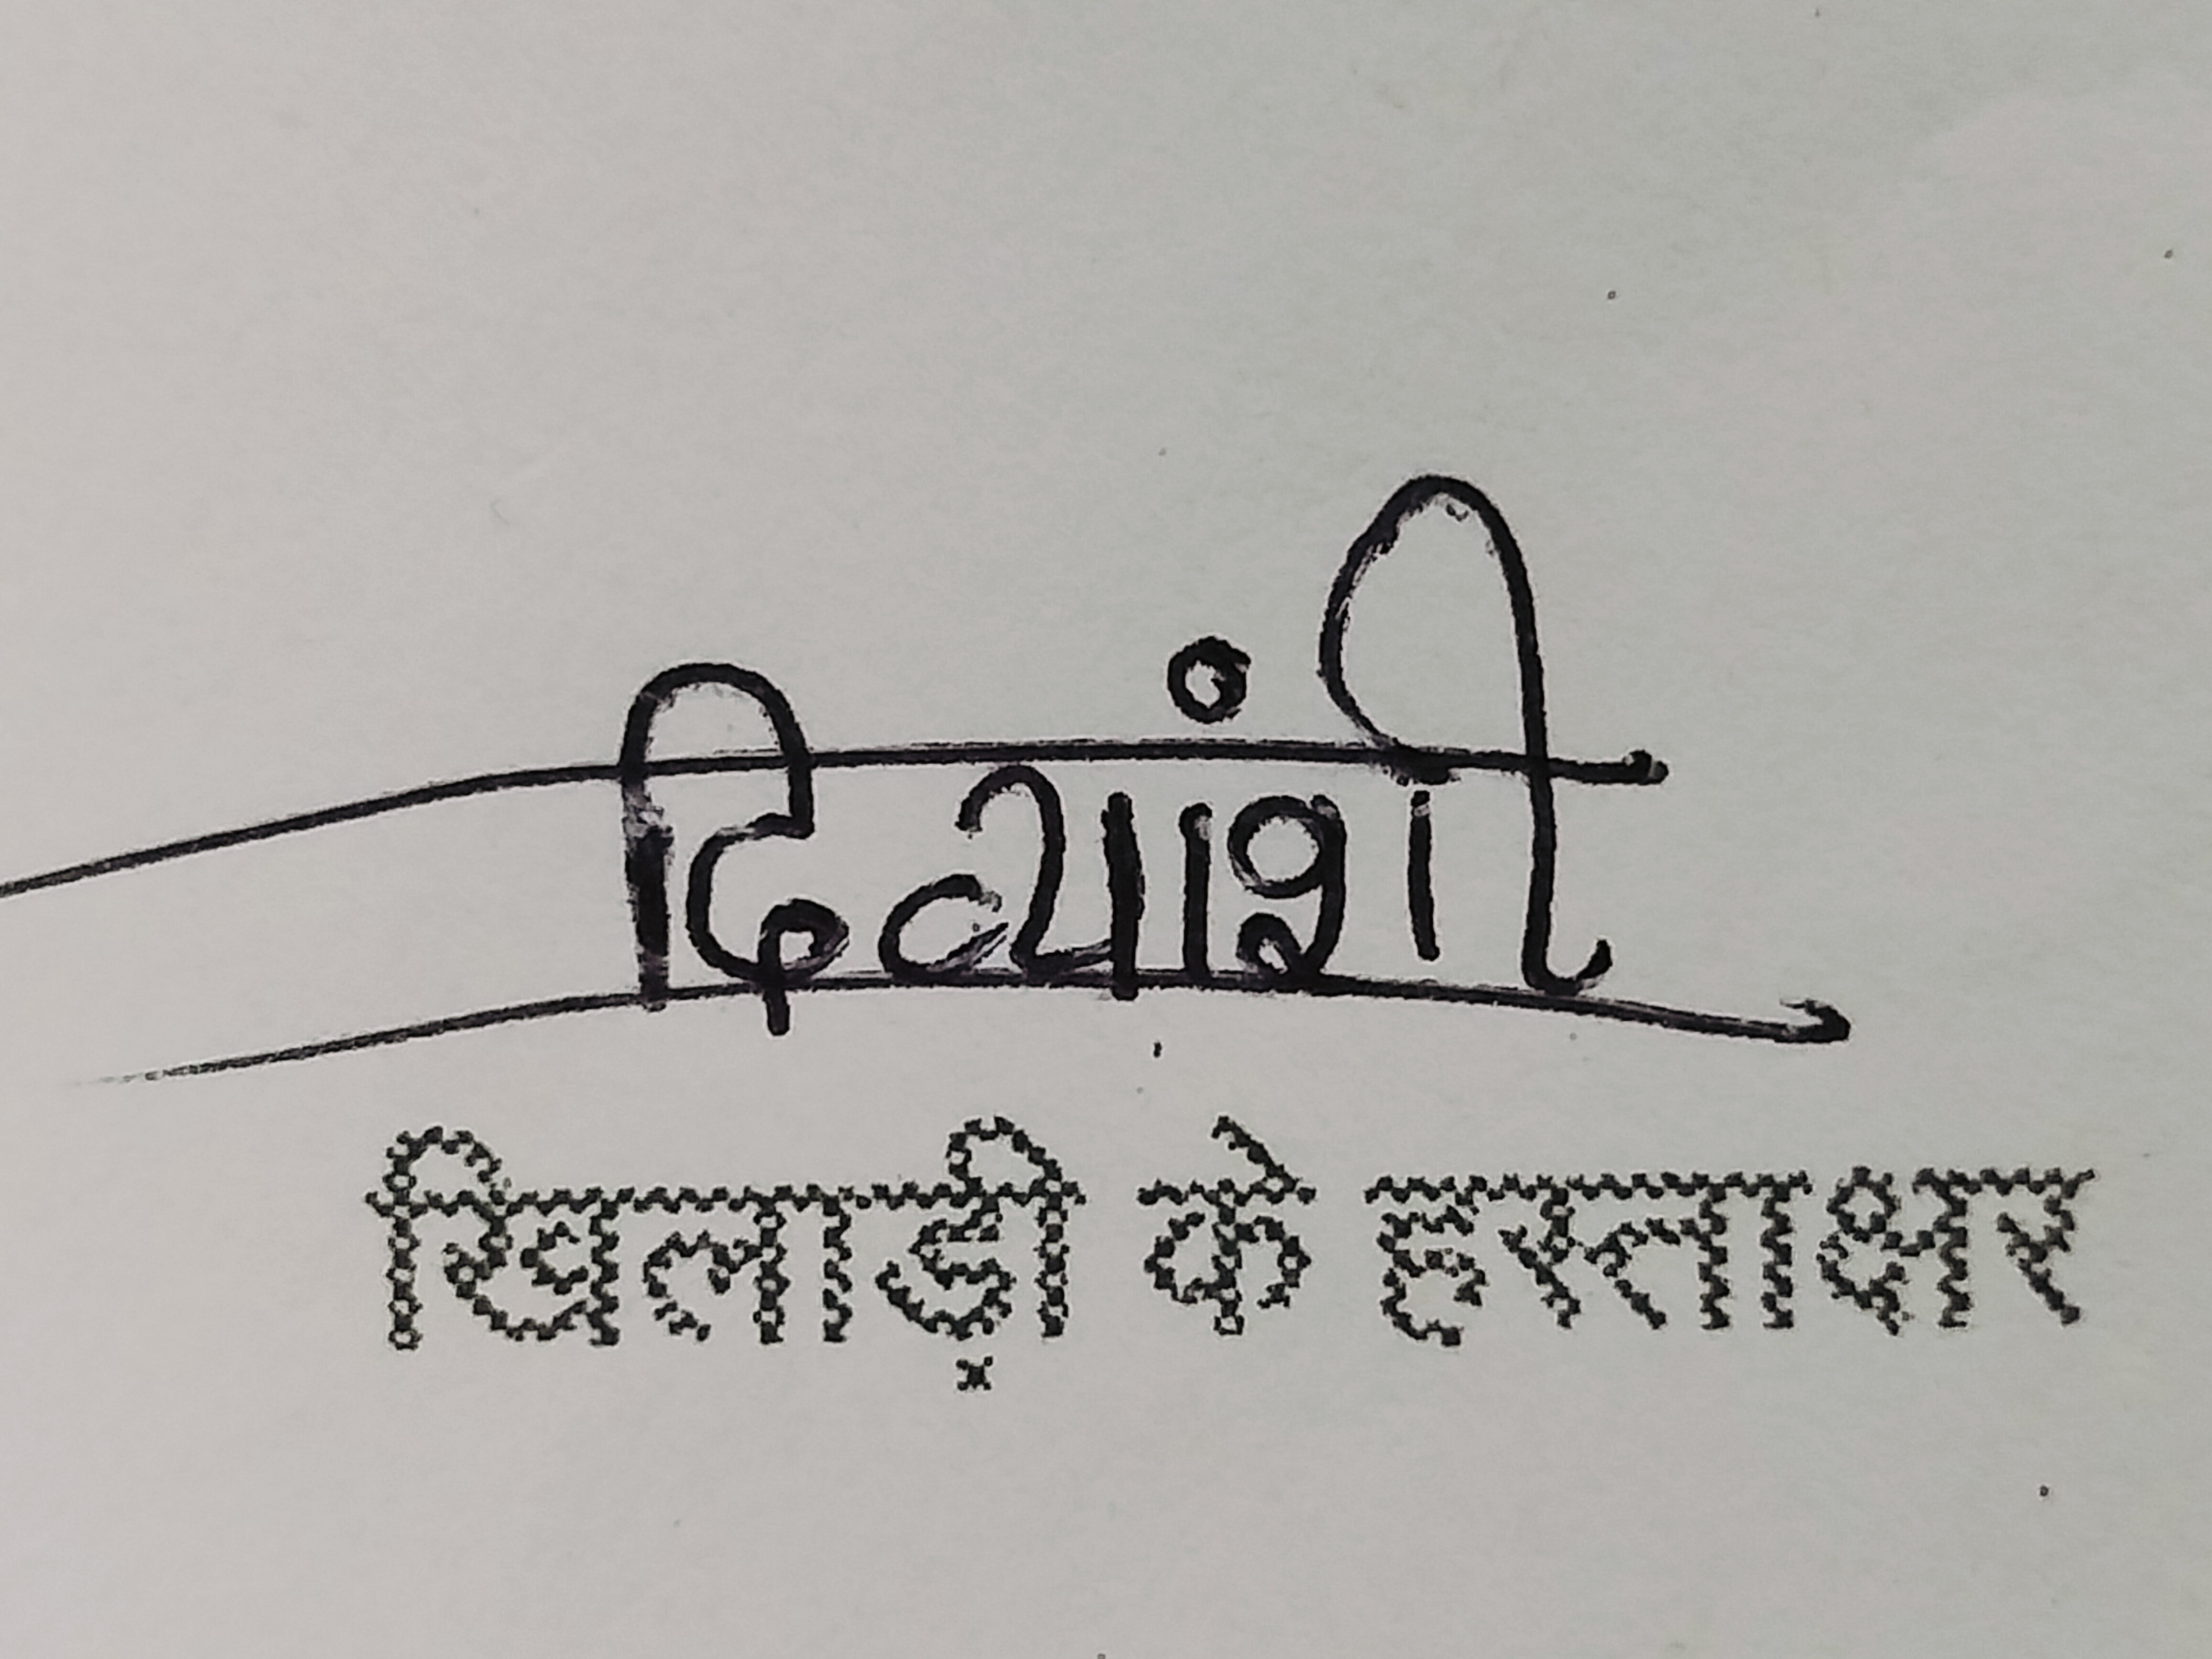 दिव्यांशी
खिलाड़ी के हस्ताक्षर